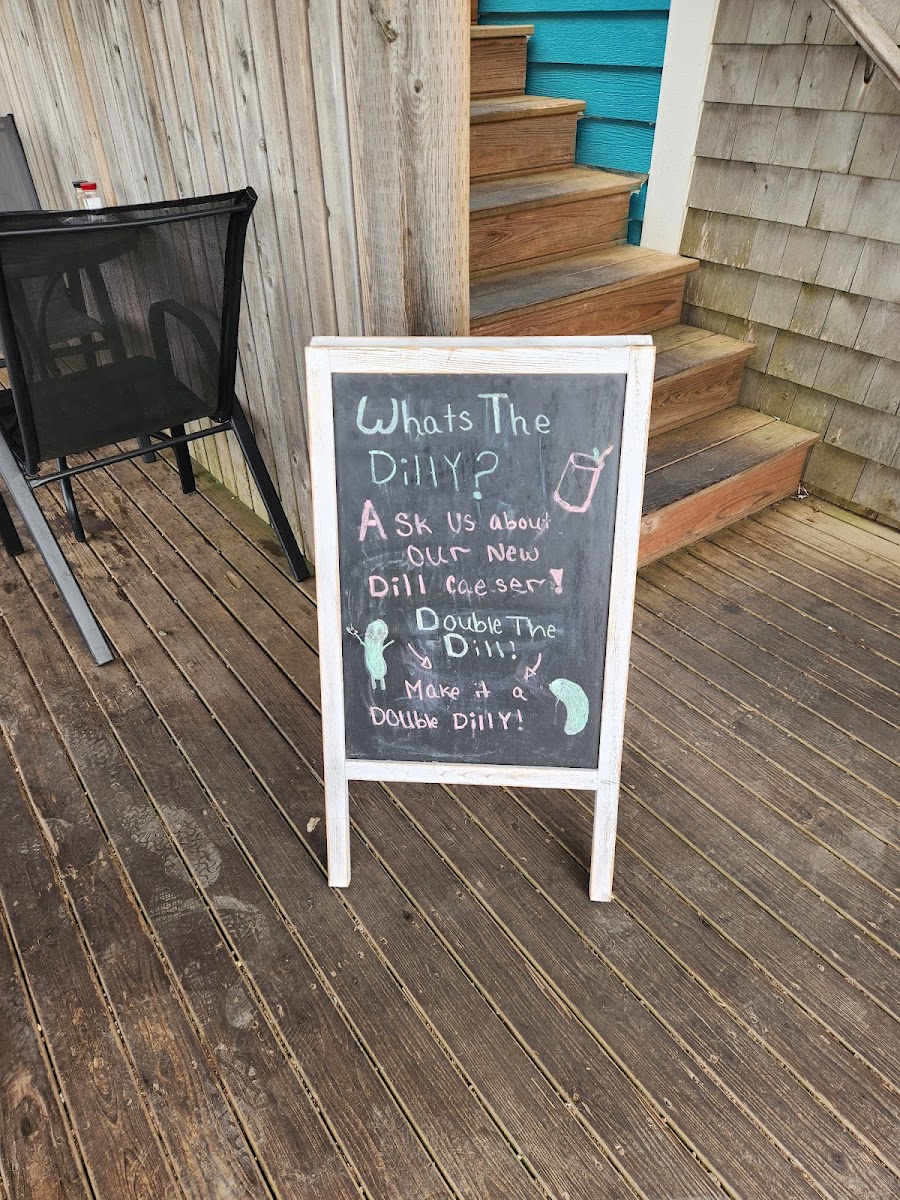 Whats The
Dilly?
Ask Us about
our New
Dill Caeser!
Double The
Dill!
Make it a
Double Dilly!